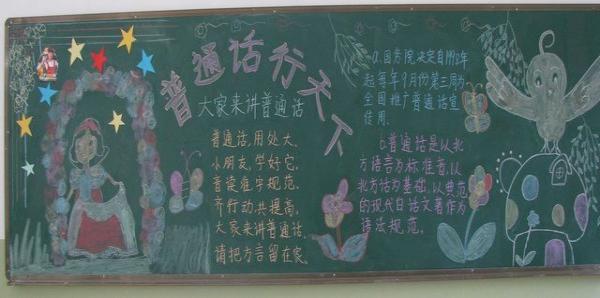 普通话行天下
大家来讲普通话
普通话,用处大,
小朋友,学好它。
音读准字规范,
齐行动共提高。
大家来讲普通话,
请把方言留在家。
a.国务院决定自1998年
起每年9月份第三周为
全国推广普通话宣
传周
b.普通话是以北
方语言为标准音,以
北方话为基础,以典范
的现代白话文著作为
语法规范。